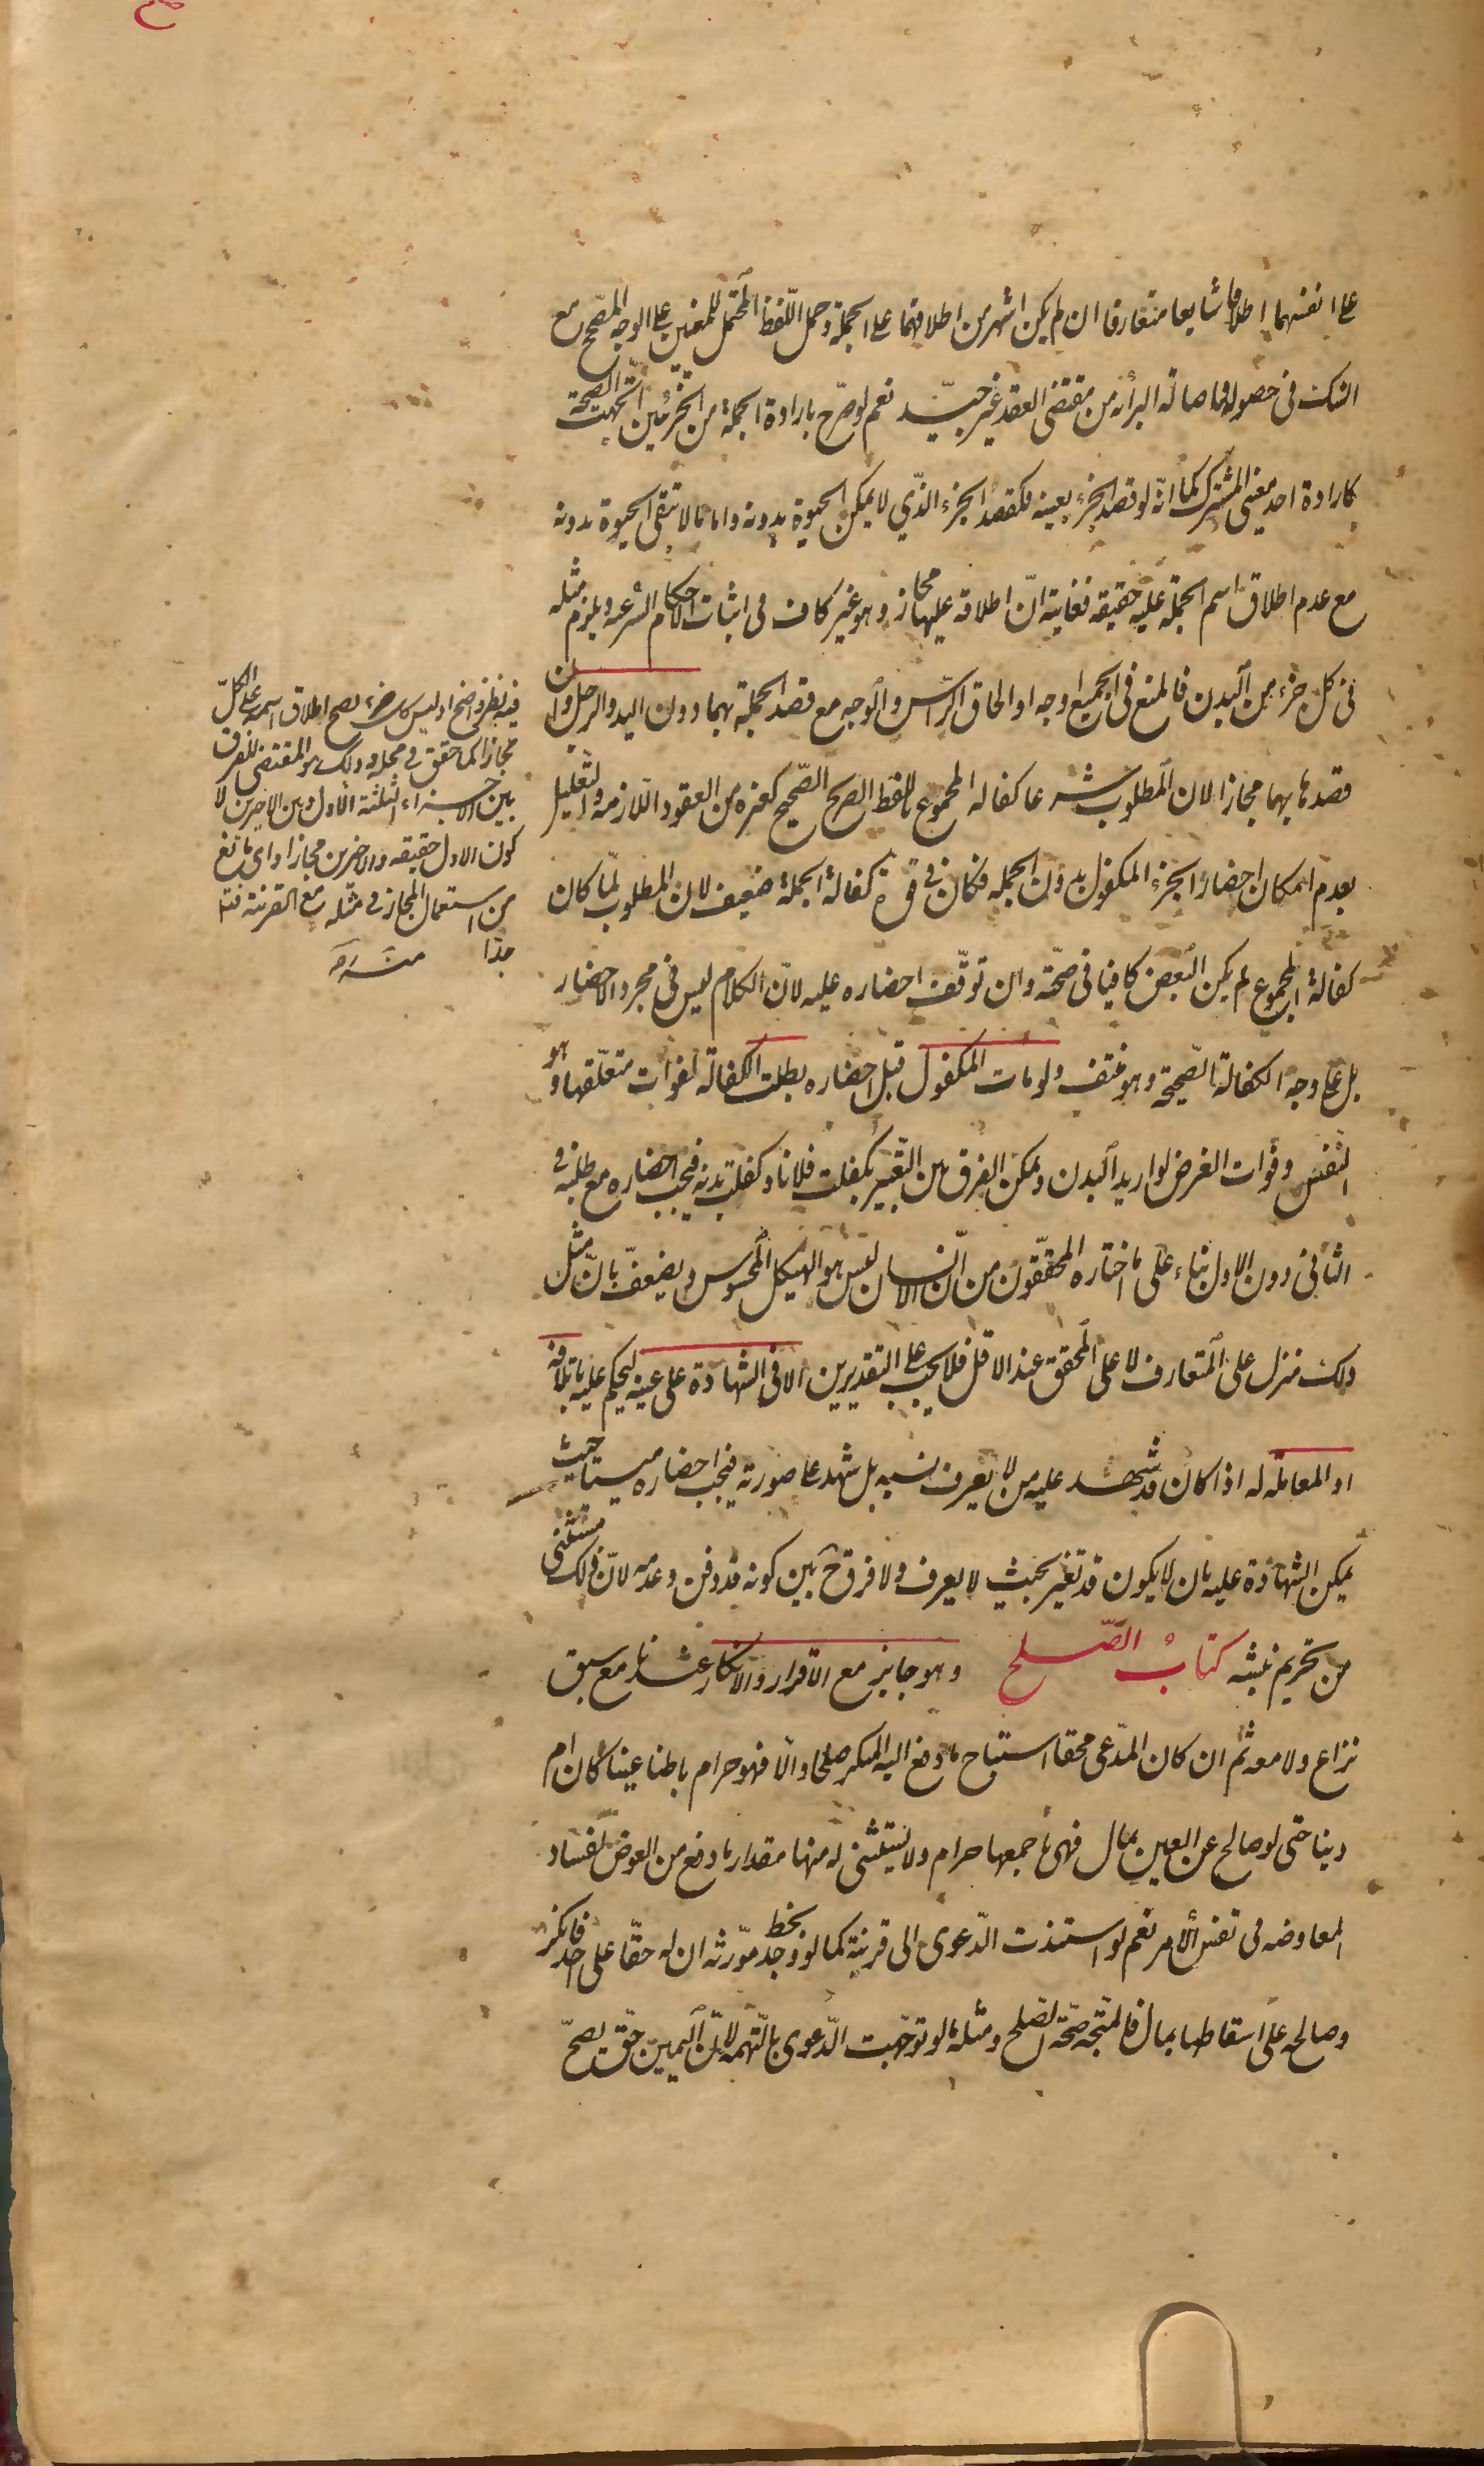 على انفسهما اطلاقا شايعا متعارفا ان لم يكن اشهر من اطلاقهما على الجملة وحمل اللفظ المحتمل للمعنيين على الوجه المصحح مع
الشك في حصوله واصالة البرائه من مقتضى العقد غير جيد نعم لو صرح بارادة الجملة من الجزئين اتجهت الصحة
كارادة احد معنى المشترك كما انه لو قصد الجزء بعينه فكقصد الجزء الذي لا يمكن الحيوة بدونه واما ما لا تبقى الحيوة بدونه
مع عدم اطلاق اسم الجملة عليه حقيقه فغايته ان اطلاقه عليها مجاز وهو غير كاف في اثبات الاحكام الشرعيه ويلزم مثله
في كل جزء من البدن فالمنع في الجميع اوجه او الحاق الراس والوجه مع قصد الجملة بهما دون اليد والرجل وان
قصدها بهما مجازا لان المطلوب شرعا كفالة المجموع باللفظ الصريح الصحيح كغيره من العقود اللازمه والتعليل
بعدم امكان احضار الجزء المكفول بدون الجمله فكان في قوة كفالة الجملة ضعيف لان المطلوب لما كان
كفالة المجموع لم يكن البعض كافيا في صحته وان توقف احضاره عليه لان الكلام ليس في مجرد الاحضار
بل على وجه الكفالة الصحيحة وهو منتف ولو مات المكفول قبل احضاره بطلت الكفالة لفوات متعلقها وهو
النفس وفوات الغرض لو اريد البدن ويمكن الفرق بين التعبير بكفلت فلانا وكفلت بدنه فيجب احضاره مع طلبه في
الثاني دون الاول بناء على ما اختاره المحققون من ان الانسان ليس هو الهيكل المحسوس ويضعف بان مثل
ذلك منزل على المتعارف لا على المحقق عند الاقل فلا يجب على التقديرين الا في الشهادة على عينه ليحكم عليه باتلافه
او المعاملة له اذا كان قد شهد عليه من لا يعرف نسبه بل شهد على صورته فيجب احضاره ميتا حيث
يمكن الشهادة عليه بان لا يكون قد تغير بحيث لا يعرف ولا فرق ح بين كونه قد دفن وعدمه لان ذلك مستثنى
من تحريم نبشه كتاب الصلح وهو جايز مع الاقرار والانكار عندنا مع سبق
نزاع ولا معه ثم ان كان المدعى محقا استباح ما دفع اليه المنكر صلحا والا فهو حرام باطنا عينا كان ام
دينا حتى لو صالح عن العين بمال فهي باجمعها حرام ولا يستثنى له منها مقدار ما دفع من العوض لفساد
المعاوضه في نفس الامر نعم لو استندت الدعوى الى قرينة كما لو وجد بخط مورثه ان له حقا على احد فانكر
وصالحه على اسقاطها بمال فالمتجه صحة الصلح ومثله ما لو توجهت الدعوى بالتهمه لان اليمين حق يصح
فيه نظر واضح اذ ليس كل جزء يصح اطلاق اسمه على الكل
مجازا كما حقق في محله وذلك هو المقتضى للفرق
بين الاجزاء الثلثة الاول وبين الاخيرين لا
كون الاول حقيقه والاخيرين مجازا واى مانع
من استعمال المجاز في مثله مع القرينة
جدا